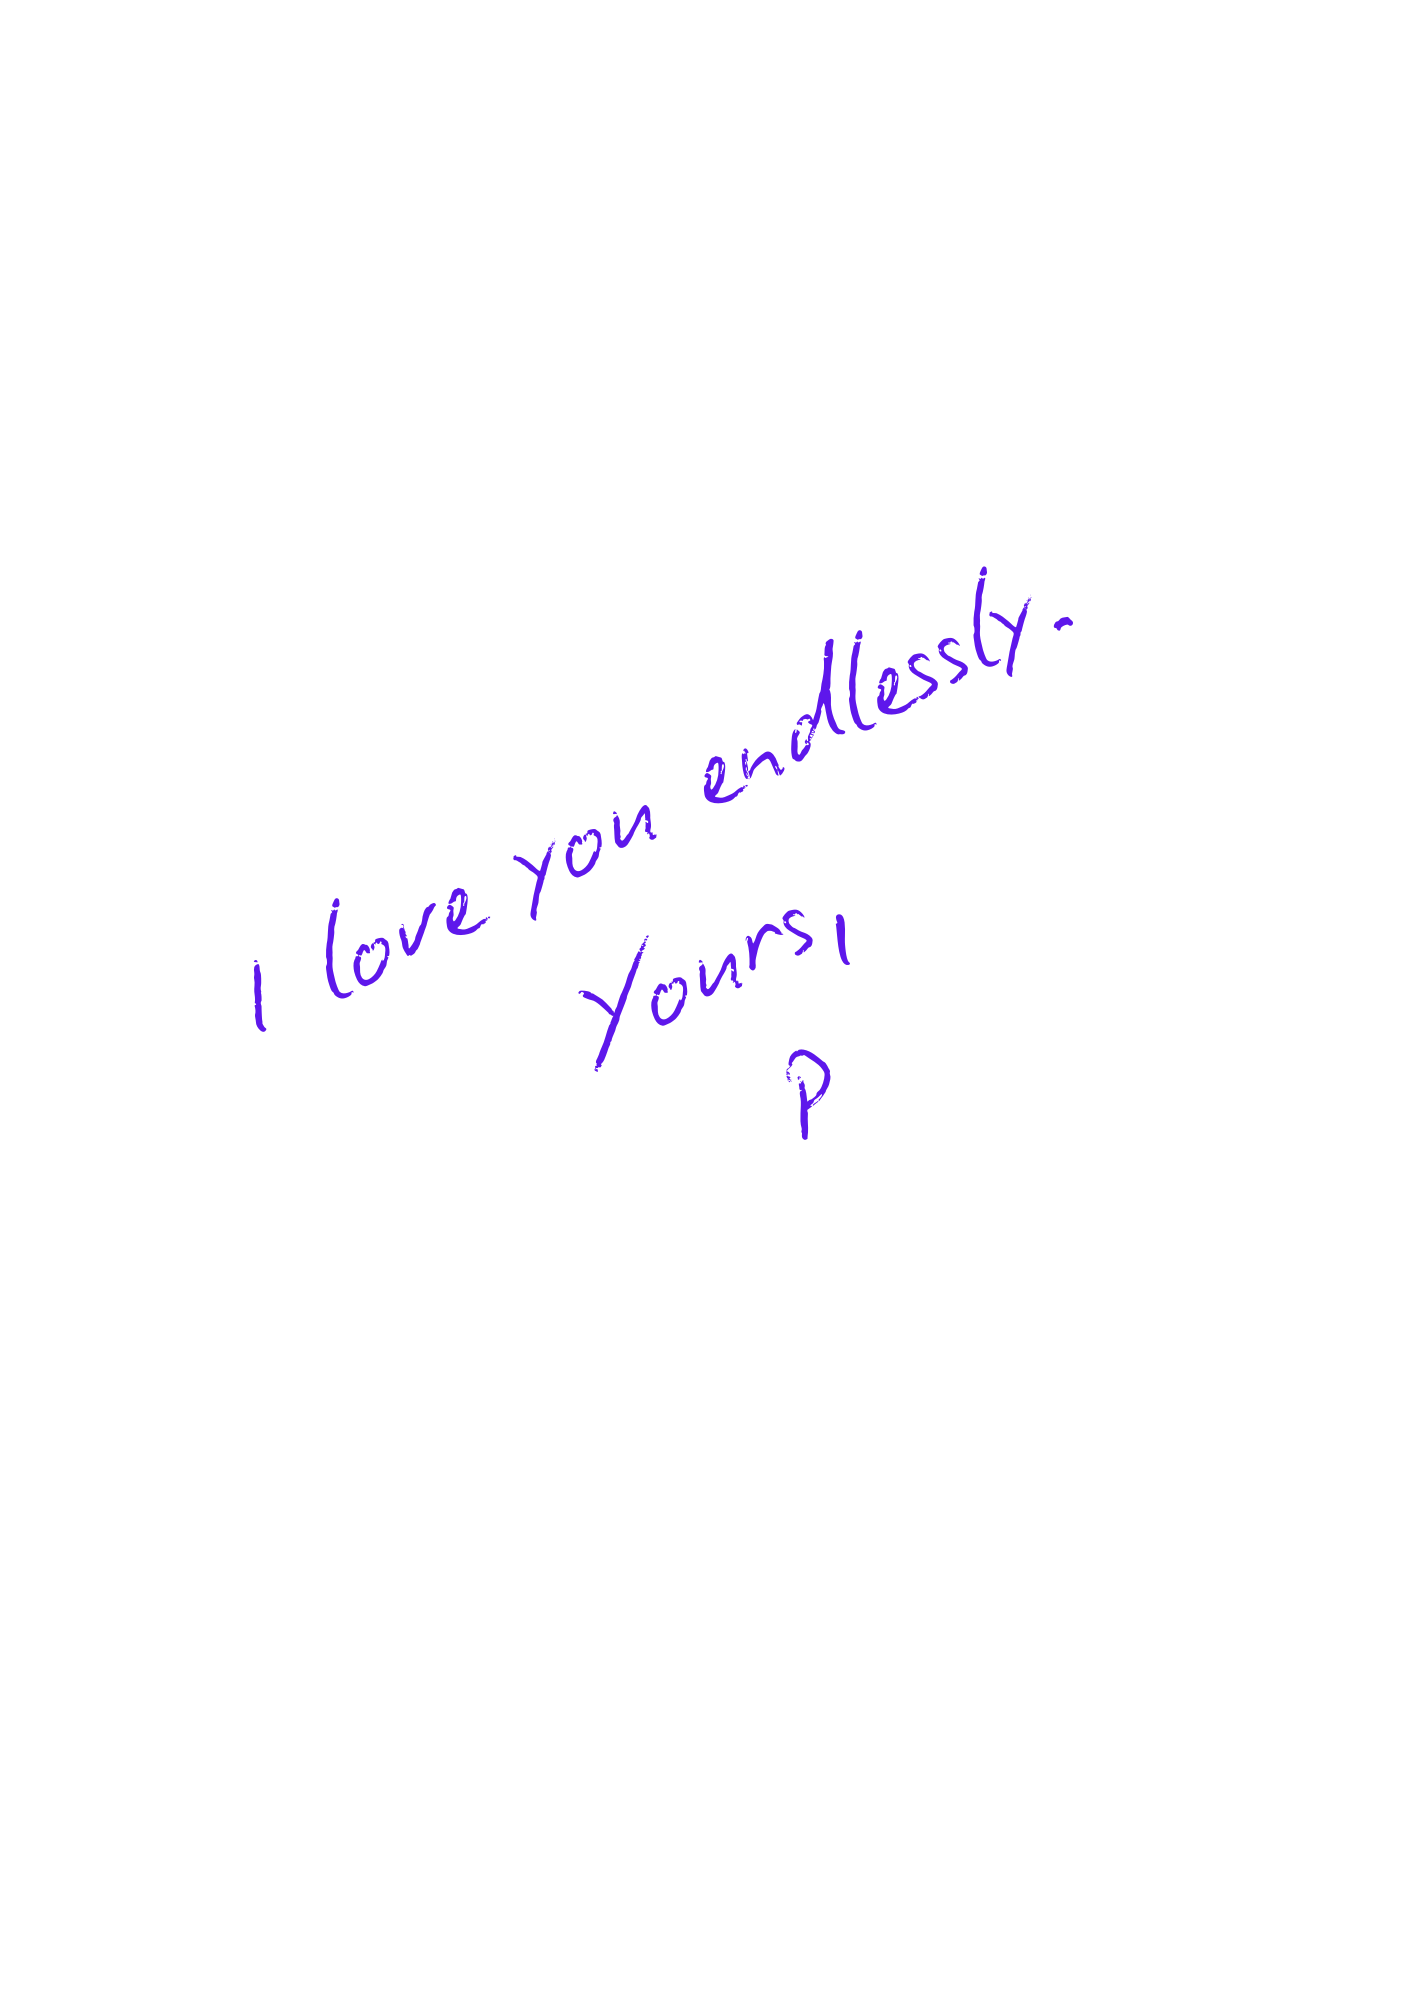 I love you endlessly.
Yours,
P